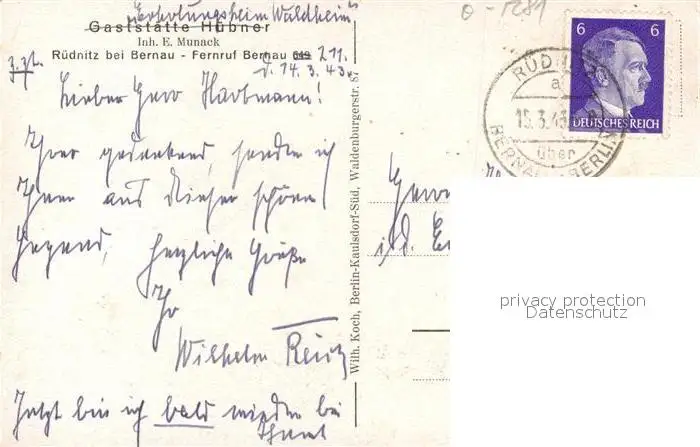 "Erholungsheim Waldheim"
Gaststätte Hübner
Inh. E. Munack
Rüdnitz bei Bernau - Fernruf Bernau 649 211.
z. Zt.
d. 14. 3. 43.
Lieber Herr Hartmann!
Ihrer gedenkend, senden ich
Ihnen aus dieser schönen
Gegend, herzliche Grüße
Ihr
Wilhelm
Jetzt bin ich bald wieder bei
Wilh. Koch, Berlin-Kaulsdorf-Süd, Waldenburgerstr. 87
6 6
DEUTSCHES REICH
15.3.43
über
BERNAU BERLIN
privacy protection
Datenschutz